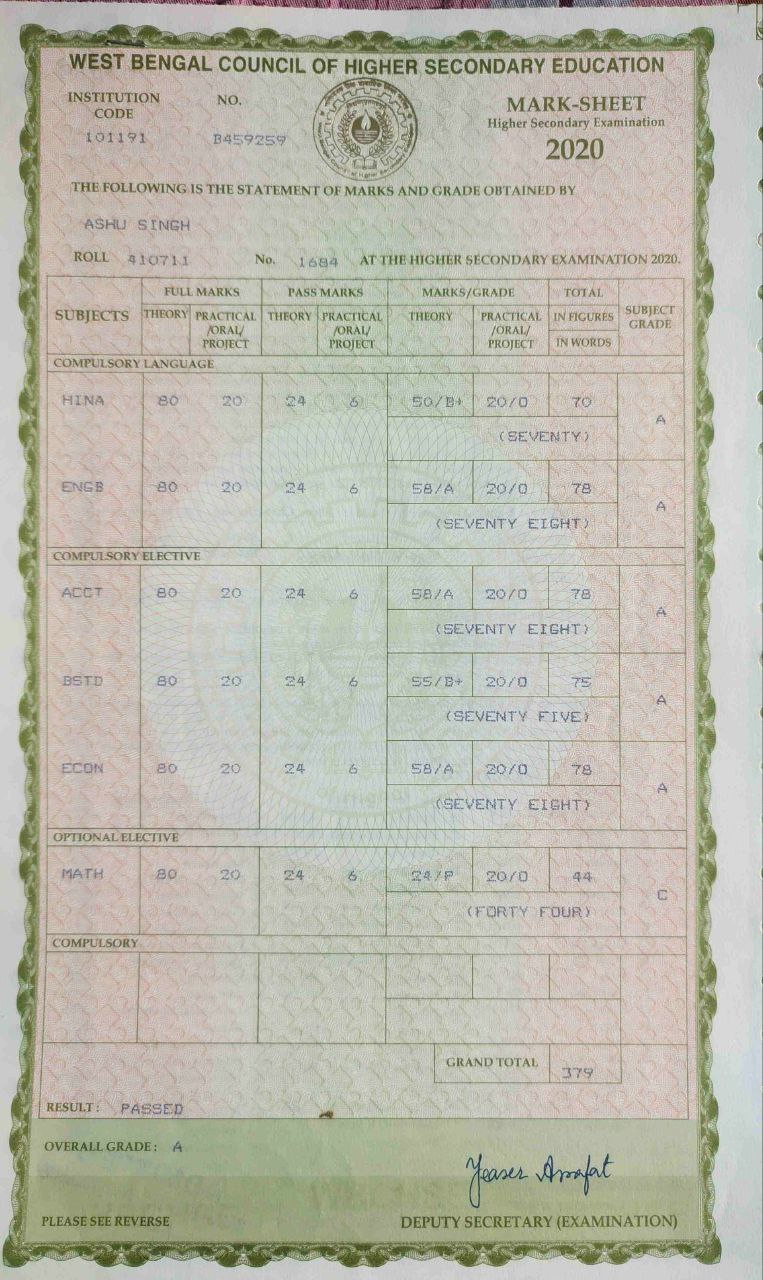 WEST BENGAL COUNCIL OF HIGHER SECONDARY EDUCATION
INSTITUTION CODE NO. MARK-SHEET
101191 B459259 Higher Secondary Examination
2020
THE FOLLOWING IS THE STATEMENT OF MARKS AND GRADE OBTAINED BY
ASHU SINGH
ROLL 410711 No. 1684 AT THE HIGHER SECONDARY EXAMINATION 2020.
SUBJECTS FULL MARKS PASS MARKS MARKS/GRADE TOTAL SUBJECT GRADE
THEORY PRACTICAL /ORAL/ PROJECT THEORY PRACTICAL /ORAL/ PROJECT THEORY PRACTICAL /ORAL/ PROJECT IN FIGURES
IN WORDS
COMPULSORY LANGUAGE
HINA 80 20 24 6 50/B+ 20/O 70 A
(SEVENTY)
ENGB 80 20 24 6 58/A 20/O 78 A
(SEVENTY EIGHT)
COMPULSORY ELECTIVE
ACCT 80 20 24 6 58/A 20/O 78 A
(SEVENTY EIGHT)
BSTD 80 20 24 6 55/B+ 20/O 75 A
(SEVENTY FIVE)
ECON 80 20 24 6 58/A 20/O 78 A
(SEVENTY EIGHT)
OPTIONAL ELECTIVE
MATH 80 20 24 6 24/P 20/O 44 C
(FORTY FOUR)
COMPULSORY
GRAND TOTAL 379
RESULT: PASSED
OVERALL GRADE: A
Yeaser Arrafat
PLEASE SEE REVERSE DEPUTY SECRETARY (EXAMINATION)